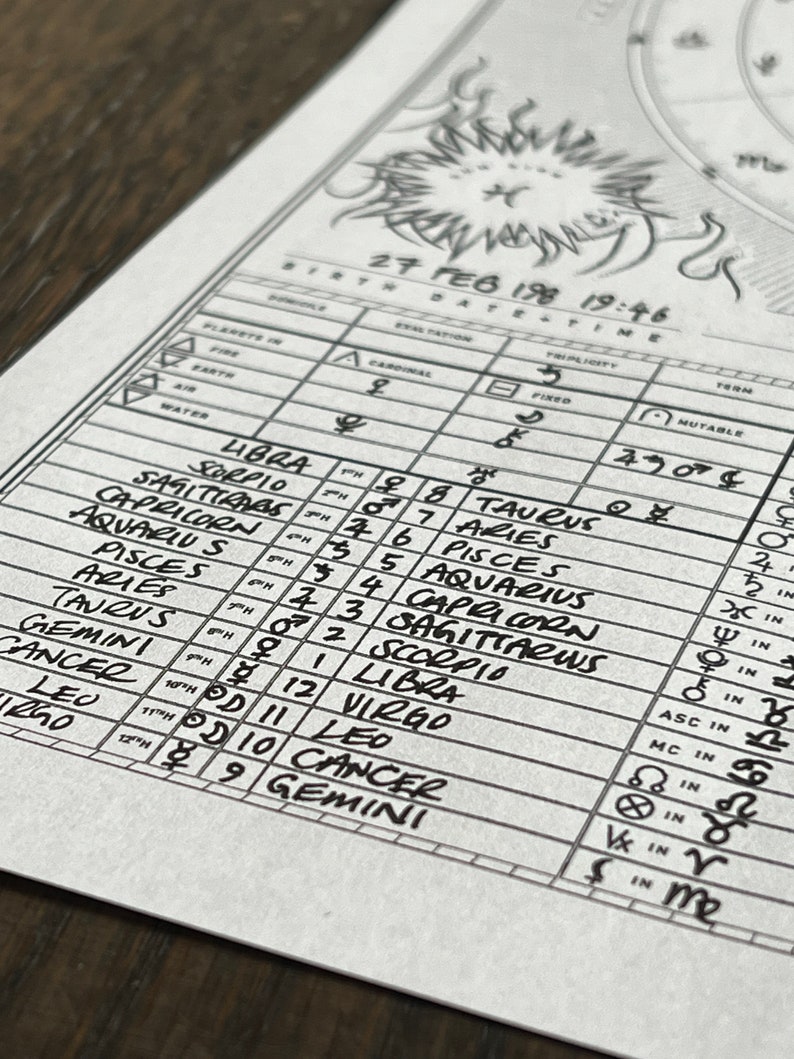 ♓
27 FEB 198 19:46
BIRTH DATE + TIME
DOMICILE EXALTATION TRIPLICITY TERM
PLANETS IN CARDINAL FIXED MUTABLE
FIRE ♀ ☽ ♃ ♄ ♂ ⚸
EARTH
AIR ♇
WATER ♅ ☉ ☿
LIBRA 1TH ♀ 8 TAURUS
SCORPIO 2TH ♂ 7 ARIES
SAGITTARIUS 3TH ♃ 6 PISCES
CAPRICORN 4TH ♄ 5 AQUARIUS
AQUARIUS 5TH ♄ 4 CAPRICORN
PISCES 6TH ♃ 3 SAGITTARIUS
ARIES 7TH ♂ 2 SCORPIO
TAURUS 8TH ♀ 1 LIBRA
GEMINI 9TH ☿ 12 VIRGO
CANCER 10TH ☉☽ 11 LEO
LEO 11TH ☉☽ 10 CANCER
VIRGO 12TH ☿ 9 GEMINI
♃ IN
♄ IN
IN
♆ IN
IN
⚷ IN ♉
ASC IN ♎
MC IN ♋
☊ IN ♌
⊗ IN ♉
Vx IN ♈
⚸ IN ♏